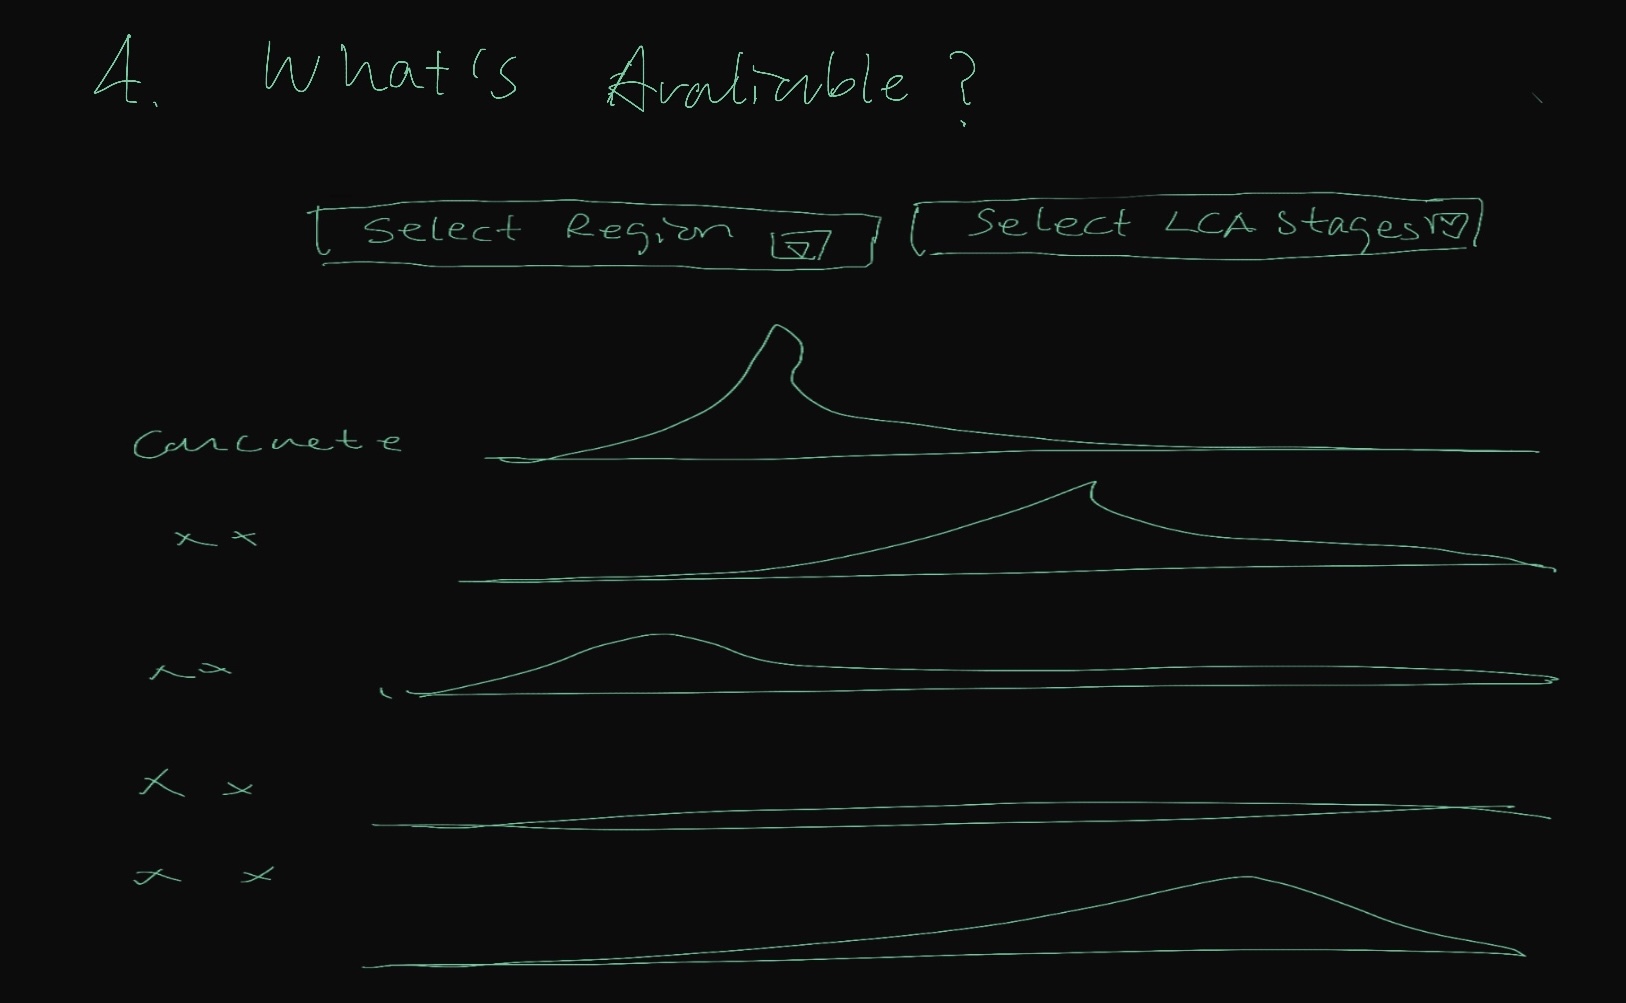 4. What's Avaliable?
Select Region
Select LCA Stages
Concrete
x x
x x
x x
x x